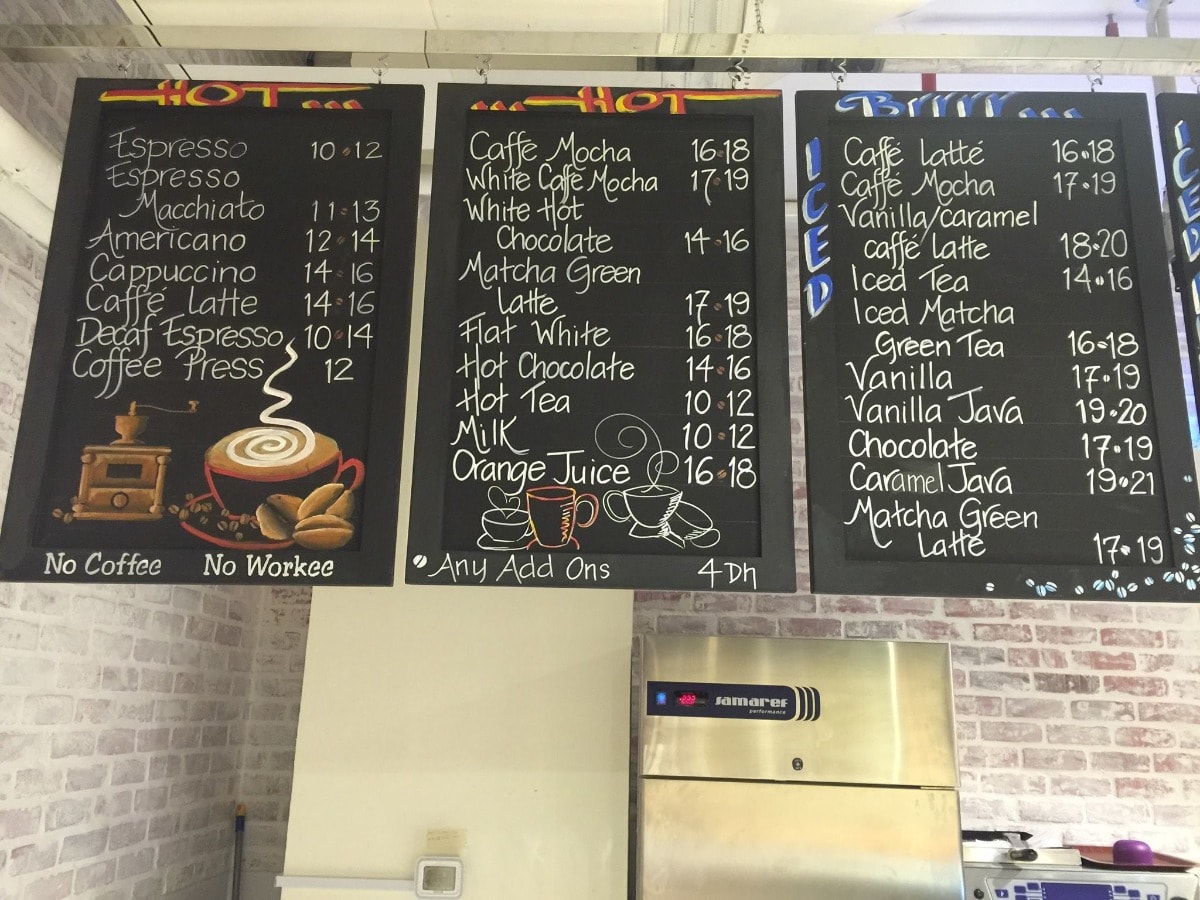 HOT ...
Espresso 10•12
Espresso
Macchiato 11•13
Americano 12•14
Cappuccino 14•16
Caffé Latte 14•16
Decaf Espresso 10•14
Coffee Press 12
No Coffee No Workee
... HOT
Caffe Mocha 16•18
White Caffe Mocha 17•19
White Hot
Chocolate 14•16
Matcha Green
Latte 17•19
Flat White 16•18
Hot Chocolate 14•16
Hot Tea 10•12
Milk 10•12
Orange Juice 16•18
Any Add Ons 4Dh
Brrrr...
ICED
Caffé Latté 16•18
Caffé Mocha 17•19
Vanilla/caramel
caffé Latte 18•20
Iced Tea 14•16
Iced Matcha
Green Tea 16•18
Vanilla 17•19
Vanilla Java 19•20
Chocolate 17•19
Caramel Java 19•21
Matcha Green
Latte 17•19
ICED
samaref
performance